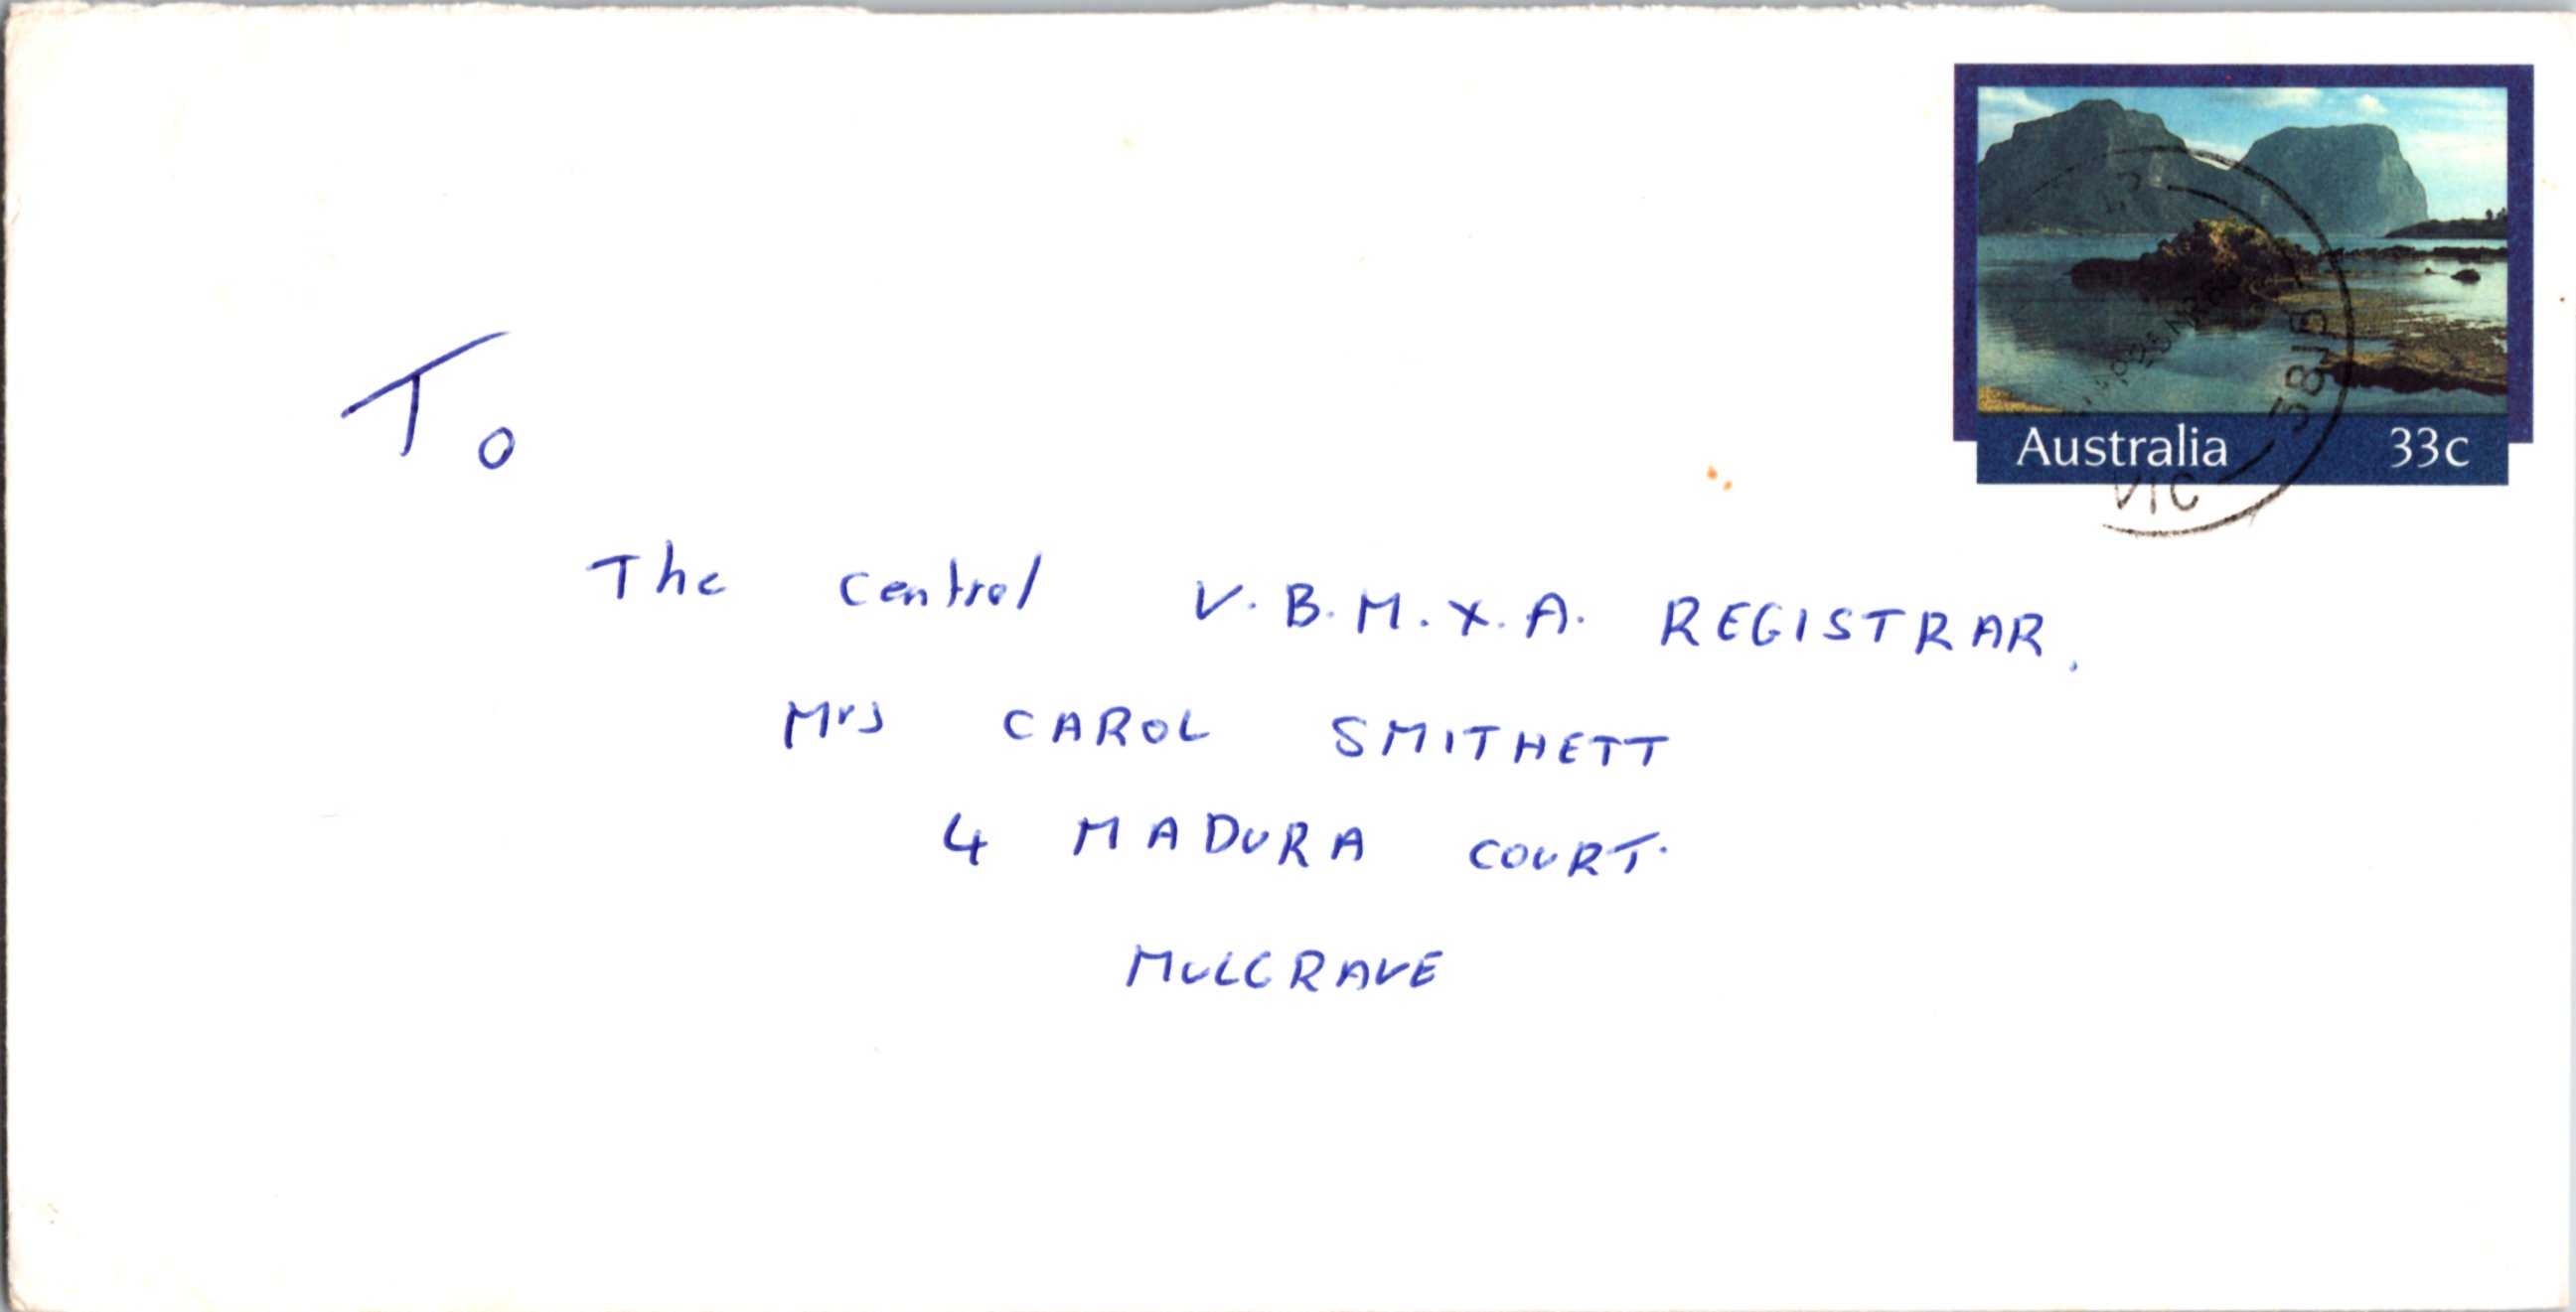 Australia 33c
VIC
To
The Central V.B.M.X.A. REGISTRAR.
Mrs CAROL SMITHETT
4 MADURA COURT.
MULGRAVE